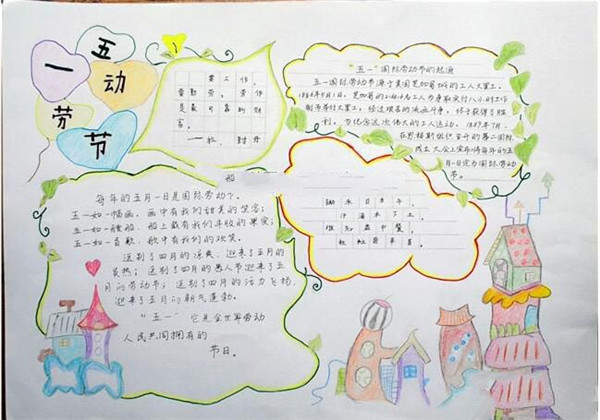 五一
动
劳
节
要工作,
要勤劳,劳作
是最可靠的财
富。
"五一"国际劳动节的起源
五一国际劳动节源于美国芝加哥城的工人大罢工。
1886年5月1日,芝加哥的216000工人为争取实行八小时工作
制而举行大罢工,经过艰苦的流血斗争,终于获得了胜
利。为纪念这次伟大的工人运动,1889年7月,
在恩格斯组织召开的第二国际
成立大会上宣布将每年的五
月一日定为国际劳动
节。
船
每年的五月一日是国际劳动节,
五一如一幅画,画中有我们甜美的笑容;
五一如一艘船,船上载有我们丰收的果实;
五一如一首歌,歌中有我们的欢笑。
送别了四月的凉爽,迎来了五月的
炎热;送别了四月的愚人节迎来了五
月的劳动节;送别了四月的活力飞扬,
迎来了五月的朝气蓬勃。
"五一" 它是全世界劳动
人民共同拥有的
节日。
锄禾日当午,
汗滴禾下土。
谁知盘中餐,
粒粒皆辛苦。